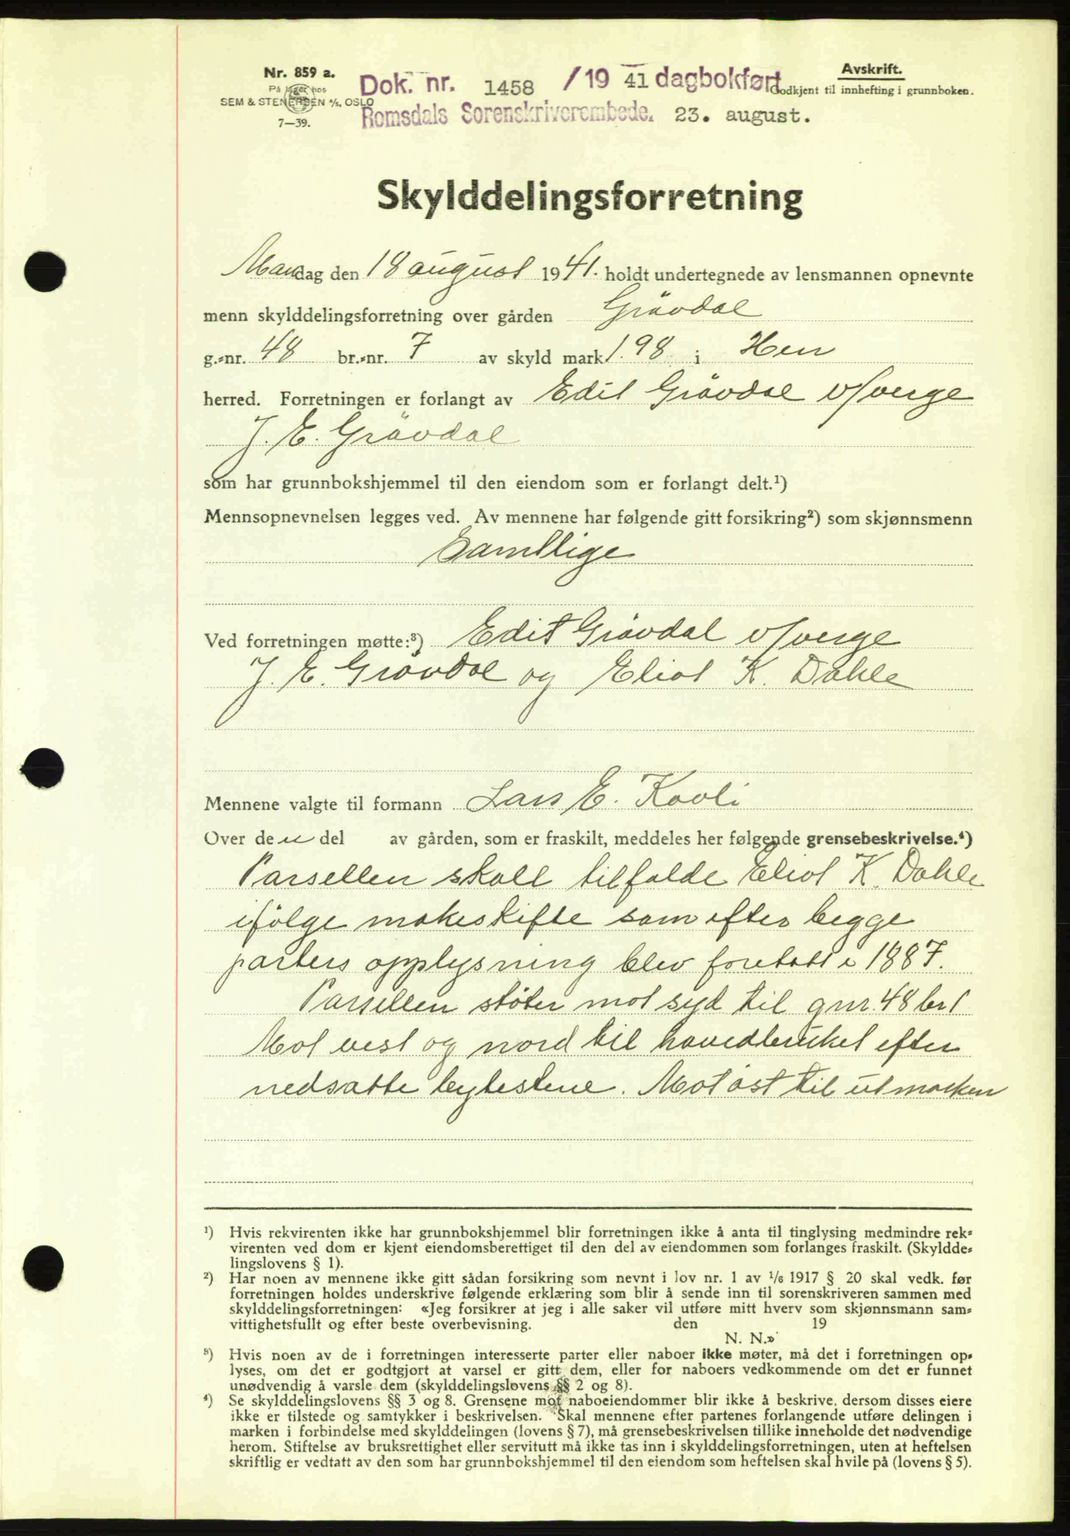 Nr. 859 a.
På lager hos
SEM & STENERSEN A/S, OSLO
7—39.
Dok. nr. 1458 /19 41 dagbokført
Romsdals Sorenskriverembede. 23. august.
Avskrift.
Godkjent til innhefting i grunnboken.
Skylddelingsforretning
Mandag den 18 august 1941. holdt undertegnede av lensmannen opnevnte
menn skylddelingsforretning over gården Grövdal
g.-nr. 48 br.-nr. 7 av skyld mark 1.98 i Hen
herred. Forretningen er forlangt av Edit Grövdal v/verge
J. E. Grövdal
som har grunnbokshjemmel til den eiendom som er forlangt delt.¹)
Mennsopnevnelsen legges ved. Av mennene har følgende gitt forsikring²) som skjønnsmenn
Samtlige
Ved forretningen møtte:³) Edit Grövdal v/verge
J. E. Grövdal og Eliot K. Dahle
Mennene valgte til formann Lars E. Kavli
Over den del av gården, som er fraskilt, meddeles her følgende grensebeskrivelse.⁴)
Parsellen skall tilfalde Eliot K. Dahle
ifölge makeskifte som efter begge
parters opplysning blev foretatt i 1887.
Parsellen støter mot syd til gnr. 48 br 1
Mot vest og nord til hovedbruket efter
nedsatte bytestene. Mot øst til utmarken
¹) Hvis rekvirenten ikke har grunnbokshjemmel blir forretningen ikke å anta til tinglysing medmindre rek-
virenten ved dom er kjent eiendomsberettiget til den del av eiendommen som forlanges fraskilt. (Skyldde-
lingslovens § 1).
²) Har noen av mennene ikke gitt sådan forsikring som nevnt i lov nr. 1 av 1/6 1917 § 20 skal vedk. før
forretningen holdes underskrive følgende erklæring som blir å sende inn til sorenskriveren sammen med
skylddelingsforretningen: «Jeg forsikrer at jeg i alle saker vil utføre mitt hverv som skjønnsmann sam-
vittighetsfullt og efter beste overbevisning. den 19
N. N.»
³) Hvis noen av de i forretningen interesserte parter eller naboer ikke møter, må det i forretningen op-
lyses, om det er godtgjort at varsel er gitt dem, eller for naboers vedkommende om det er funnet
unødvendig å varsle dem (skylddelingslovens §§ 2 og 8).
⁴) Se skylddelingslovens §§ 3 og 8. Grensene mot naboeiendommer blir ikke å beskrive, dersom disses eiere
ikke er tilstede og samtykker i beskrivelsen. Skal mennene efter partenes forlangende utføre delingen i
marken i forbindelse med skylddelingen (lovens § 7), må grensebeskrivelsen tillike inneholde det nødvendige
herom. Stiftelse av bruksrettighet eller servitutt må ikke tas inn i skylddelingsforretningen, uten at heftelsen
skriftlig er vedtatt av den som har grunnbokshjemmel til den eiendom som heftelsen skal hvile på (lovens § 5).